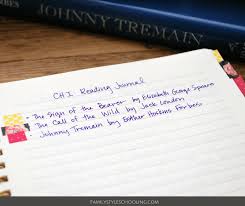 JOHNNY TREMAIN
CHI Reading Journal
• The Sign of the Beaver by Elizabeth George Speare
• The Call of the Wild by Jack London
• Johnny Tremain by Esther Hoskins Forbes
FAMILYSTYLESCHOOLING.COM